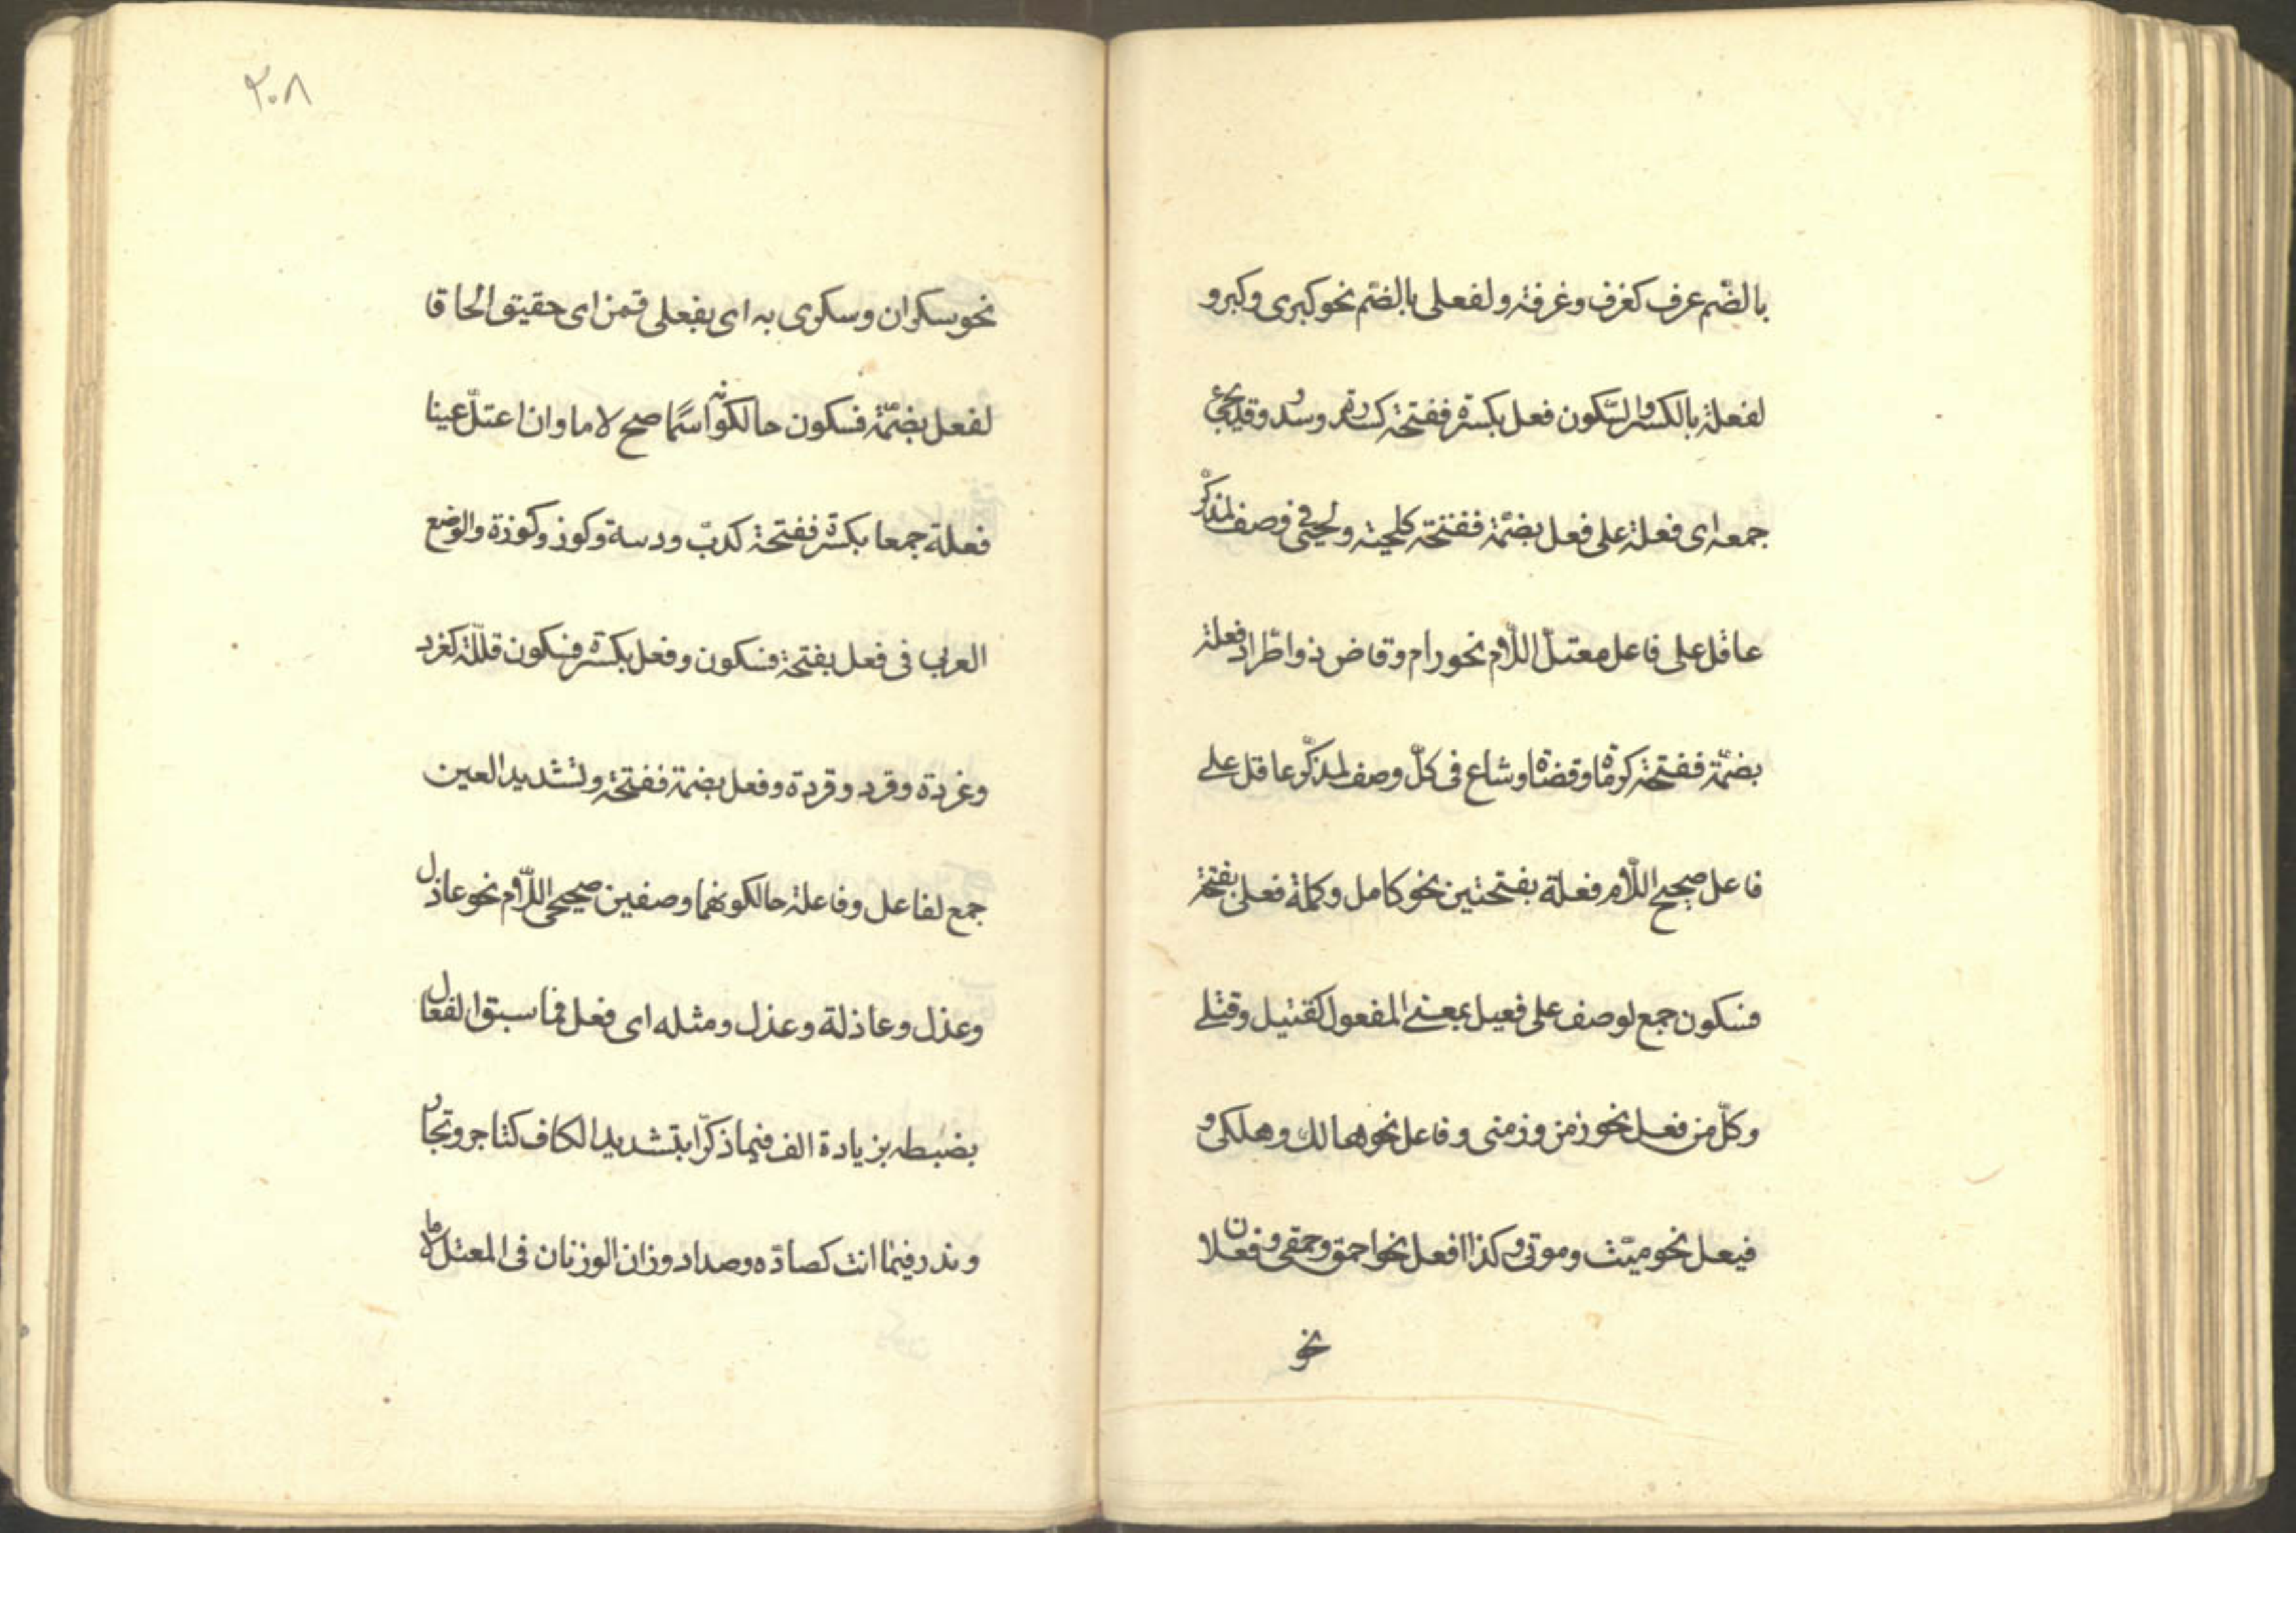 بالضّم عرف كغرف وغرفة ولفعلى بالضّم نحو كبرى وكبر و
لفعلة بالكسر والسّكون فعل بكسرة ففتحة كسدرة وسدر وقد يجئ
جمعه اى فعلة على فعل بضمّة ففتحة كلحية ولحى فى وصف لمذكّر
عاقل على فاعل معتلّ اللّام نحو رام وقاض ذو اطّراد فعلة
بضمّة ففتحة كرماة وقضاة وشاع فى كلّ وصف لمذكّر عاقل على
فاعل صحيح اللّام فعلة بفتحتين نحو كامل وكملة فعلى بفتحة
فسكون جمع لوصف على فعيل بمعنى المفعول كقتيل وقتلى
وكلّ من فعل نحو زمن وزمنى وفاعل نحو هالك وهلكى و
فيعل نحو ميّت وموتى وكذا افعل نحو احمق وحمقى وفعلان
نحو
٢٠٨
نحو سكران وسكرى به اى بفعلى قمن اى حقيق الحاقا
لفعل بضمّة فسكون حالكونه اسمًا صح لاما وان اعتلّ عينا
فعلة جمعا بكسرة ففتحة كدبّ ودببة وكوز وكوزة والوضع
العربى فى فعل بفتحة فسكون وفعل بكسرة فسكون قلّله كغرد
وغردة وقرد وقردة وفعل بضمة ففتحة ولتشديد العين
جمع لفاعل وفاعلة حالكونهما وصفين صحيحى اللّام نحو عاذل
وعذل وعاذلة وعذل ومثله اى فعل فما سبق الفعّال
بضبطه بزيادة الف فيما ذكّرا بتشديد الكاف كتاجر وتجار
وندر فيما انث كصادّه وصداد وزان الوزنان فى المعتل لاما